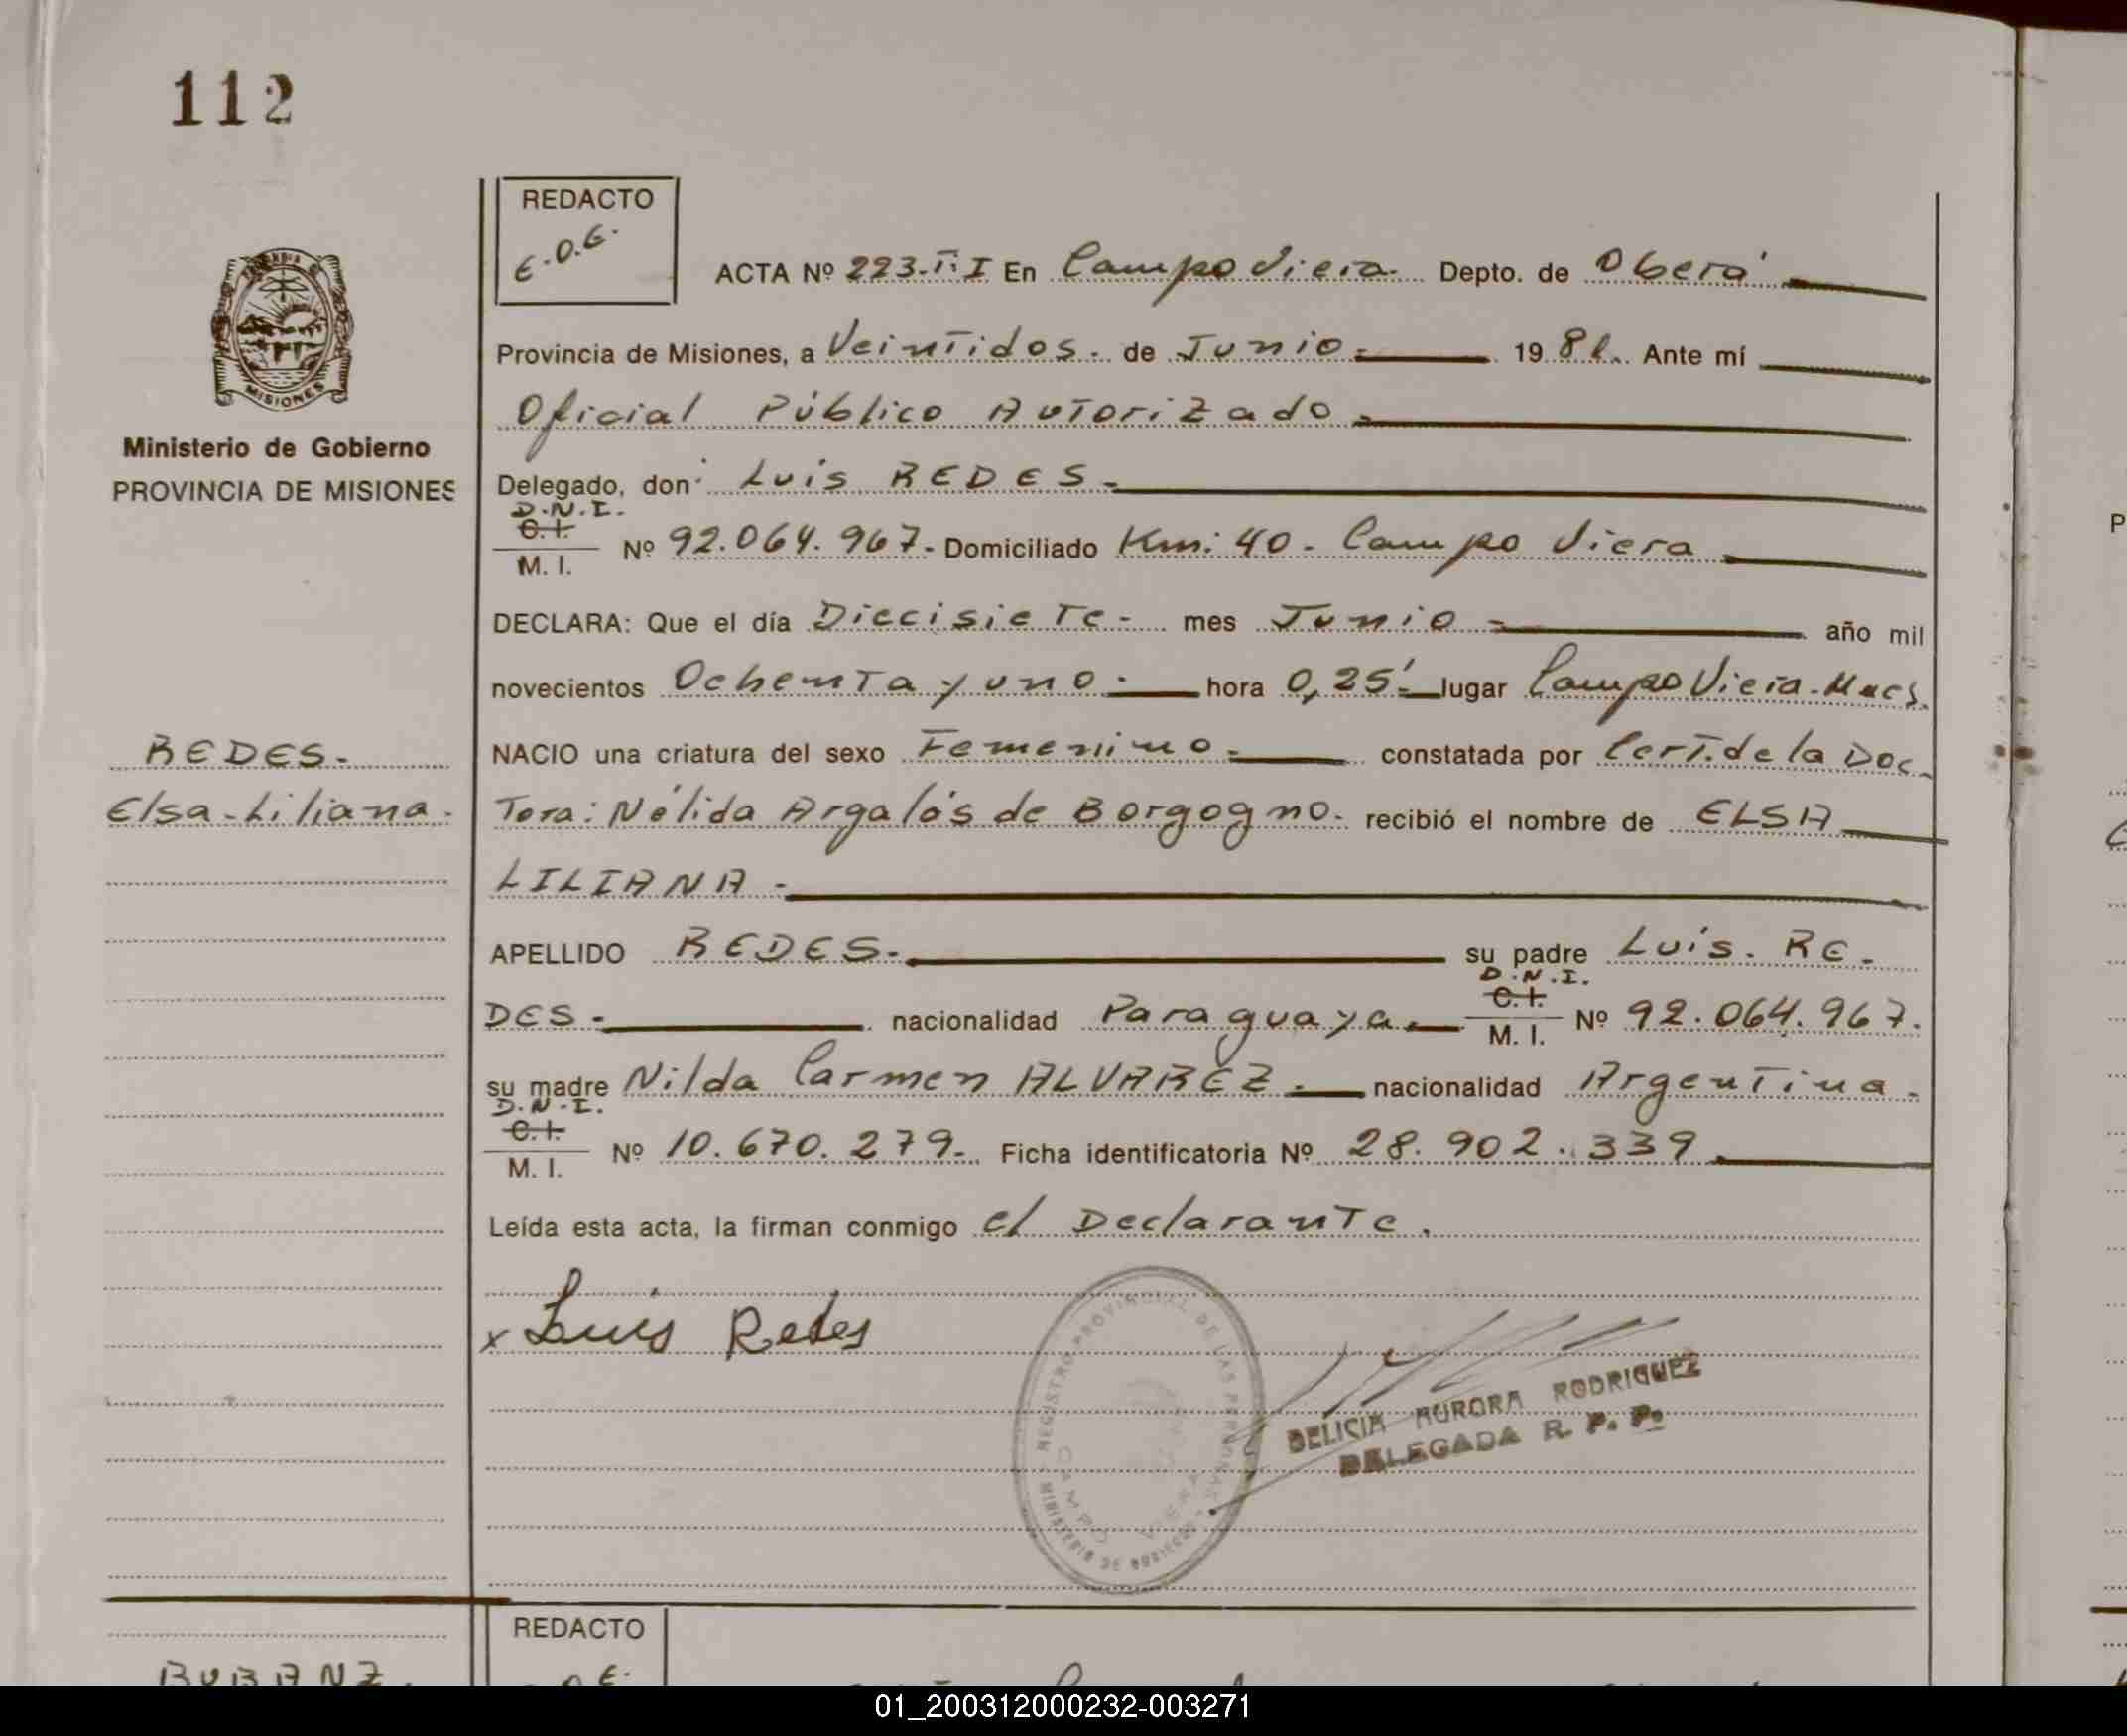 112
REDACTO
E.O.G.
ACTA Nº 223.T:I En Campo Viera. Depto. de Oberá
Provincia de Misiones, a Veintidos. de Junio. 1981. Ante mí
Oficial Público Autorizado.
Ministerio de Gobierno
PROVINCIA DE MISIONES
Delegado, don: Luis REDES.
D.N.I.
C.I.
M. I. Nº 92.064.967. Domiciliado Km: 40. Campo Viera
DECLARA: Que el día Diecisiete. mes Junio. año mil
novecientos Ochenta y uno. hora 0,25' lugar Campo Viera. Mnes.
REDES.
NACIO una criatura del sexo Femenino. constatada por Cert. de la Doc.
Elsa-Liliana.
Tora: Nélida Argalás de Borgogno. recibió el nombre de ELSA
LILIANA.
APELLIDO REDES. su padre Luis. RE-
D.N.I.
DES. nacionalidad Paraguaya. C.I. M. I. Nº 92.064.967.
su madre Nilda Carmen ALVAREZ. nacionalidad Argentina.
D.N.I.
C.I.
M. I. Nº 10.670.279. Ficha identificatoria Nº 28.902.339
Leída esta acta, la firman conmigo el Declarante.
x Luis Redes
REGISTRO PROVINCIAL DE LAS PERSONAS
MINISTERIO DE GOBIERNO
CAMPO VIERA
DELICIA AURORA RODRIGUEZ
DELEGADA R. P. P.
REDACTO
01_200312000232-003271